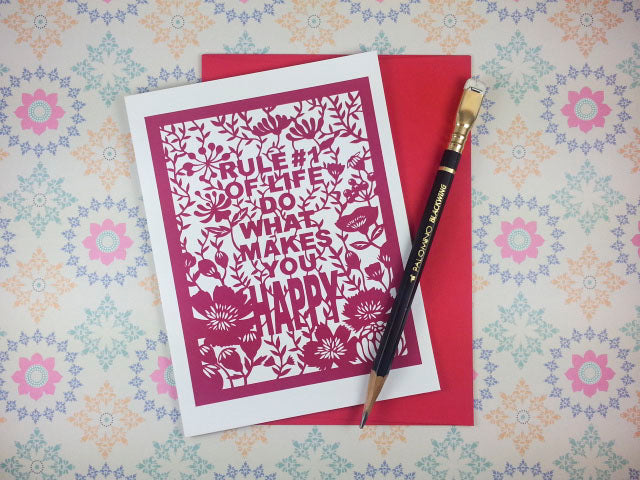 RULE #1
OF LIFE
DO
WHAT
MAKES
YOU
HAPPY
PALOMINO BLACKWING